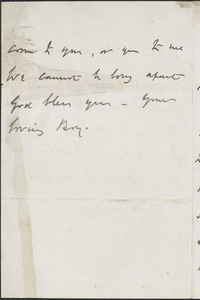 come to you, or you to me
We cannot be long apart
God bless you – Your
loving Boy.